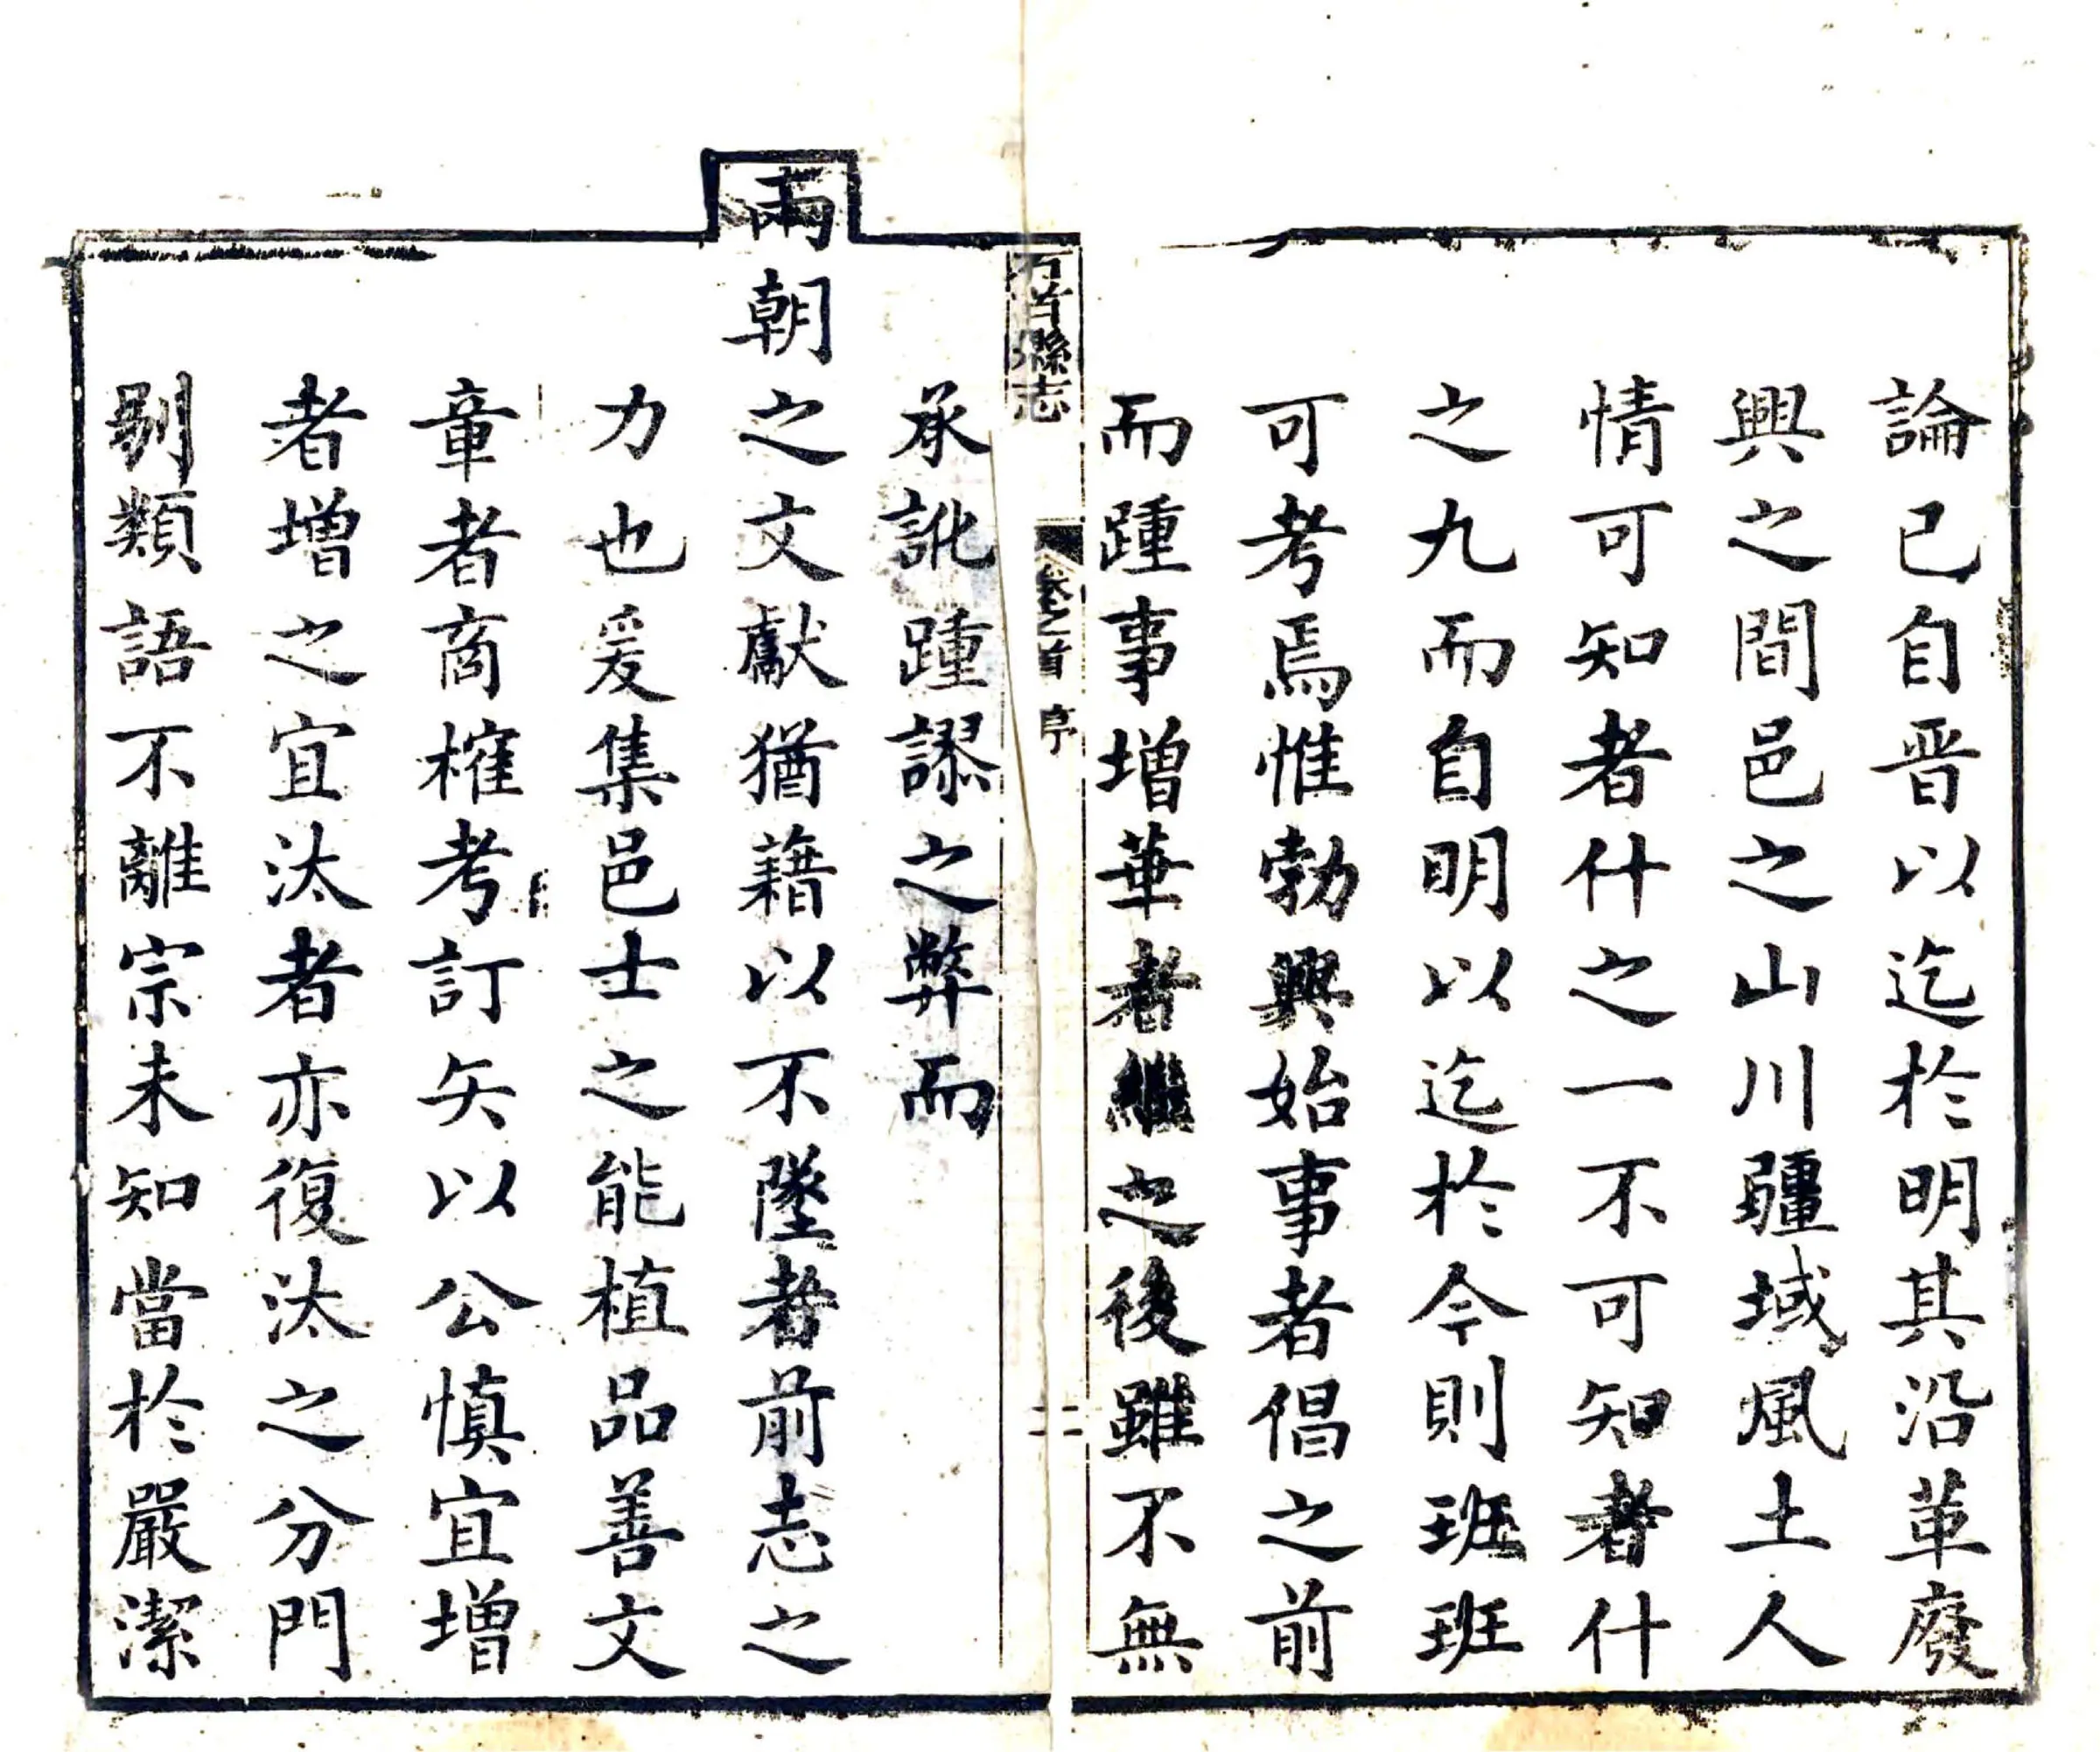 論已自晋以迄於明其沿革廢
興之間邑之山川疆域風土人
情可知者什之一不可知者什
之九而自明以迄於今則班班
可考焉惟勃興始事者倡之前
而踵事增華者繼之後雖不無
石首縣志 卷之首 序 二
承訛踵謬之弊而
兩朝之文獻猶藉以不墜者前志之
力也爰集邑士之能植品善文
章者商榷考訂矢以公慎宜增
者增之宜汰者亦復汰之分門
别類語不離宗未知當於嚴潔